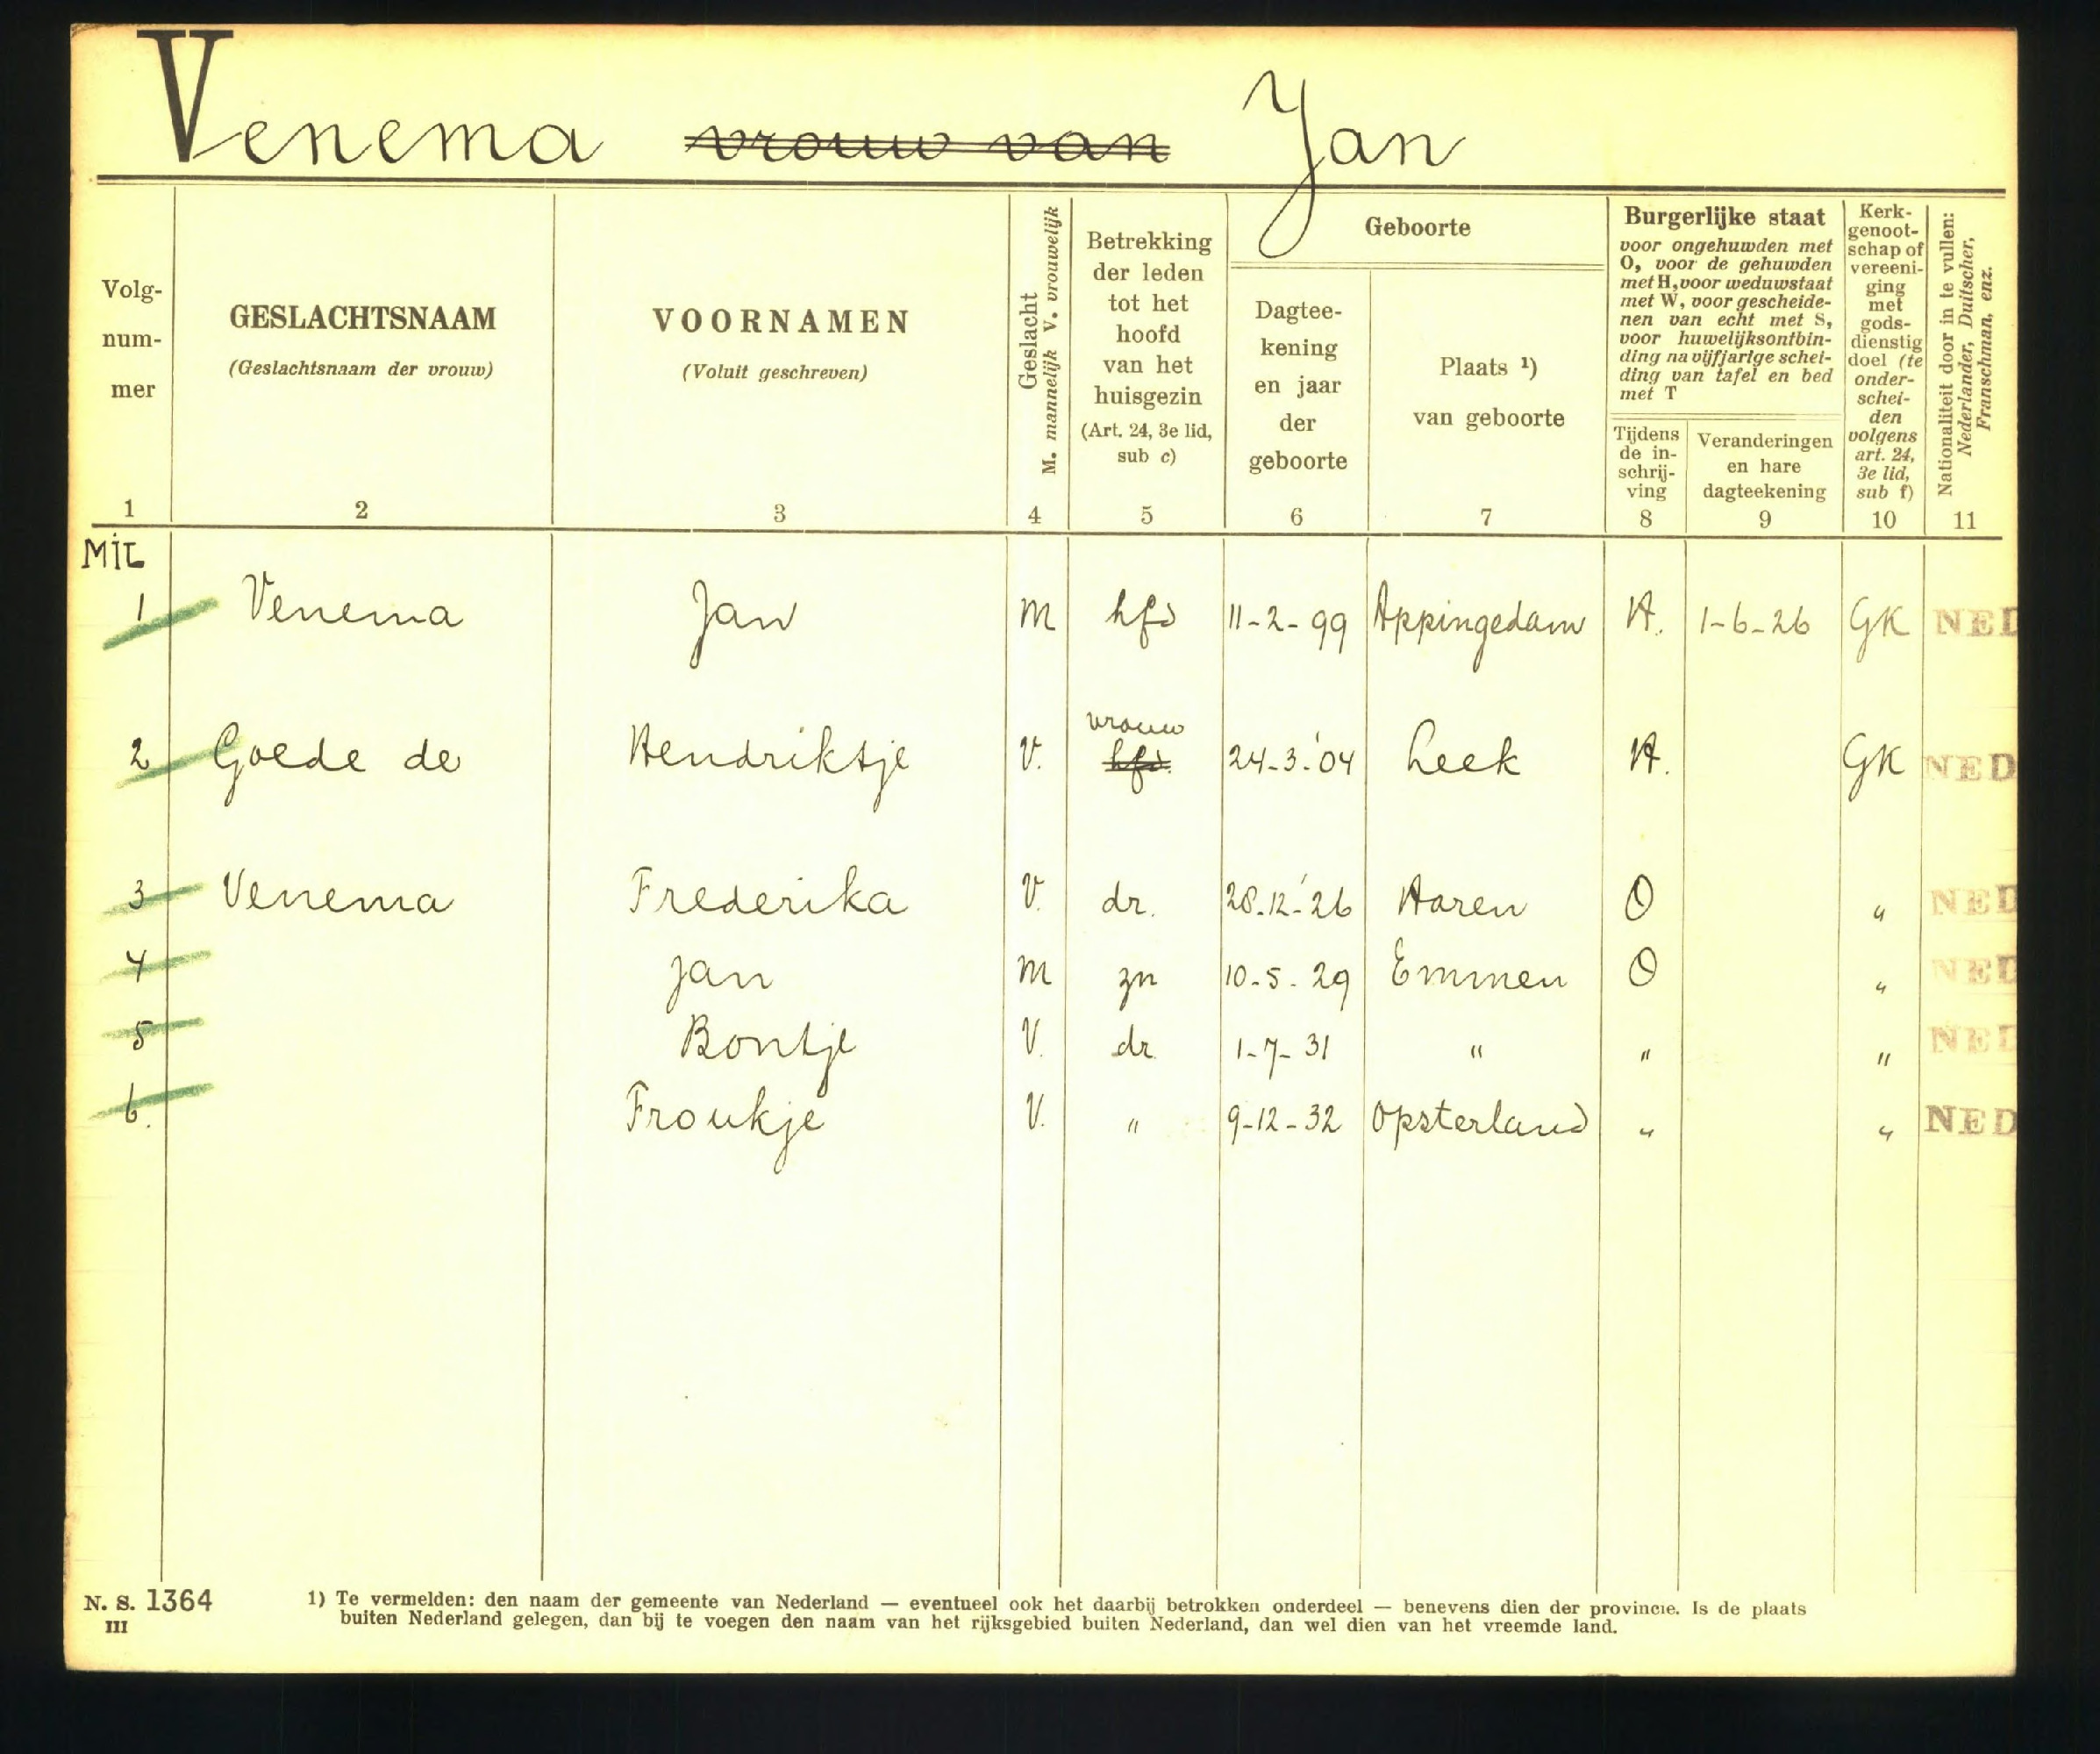 Venema vrouw van Jan
Volg-
num-
mer
1
GESLACHTSNAAM
(Geslachtsnaam der vrouw)
2
VOORNAMEN
(Voluit geschreven)
3
Geslacht
M. mannelijk V. vrouwelijk
4
Betrekking
der leden
tot het
hoofd
van het
huisgezin
(Art. 24, 3e lid,
sub c)
5
Geboorte
Dagtee-
kening
en jaar
der
geboorte
6
Plaats ¹)
van geboorte
7
Burgerlijke staat
voor ongehuwden met
O, voor de gehuwden
met H, voor weduwstaat
met W, voor gescheide-
nen van echt met S,
voor huwelijksontbin-
ding na vijfjarige schei-
ding van tafel en bed
met T
Tijdens
de in-
schrij-
ving
8
Veranderingen
en hare
dagteekening
9
Kerk-
genoot-
schap of
vereeni-
ging
met
gods-
dienstig
doel (te
onder-
schei-
den
volgens
art. 24,
3e lid,
sub f)
10
Nationaliteit door in te vullen:
Nederlander, Duitscher,
Franschman, enz.
11
MIL
1 Venema Jan M hfd 11-2-99 Appingedam H. 1-6-26 GK NED
vrouw
2 Goede de Hendriktje V. hfd. 24-3-'04 Leek H. GK NED
3 Venema Frederika V. dr. 28-12-'26 Haren O " NED
4 Jan M zn 10-5-29 Emmen O " NED
5 Bontje V. dr. 1-7-31 " " " NED
6. Froukje V. " 9-12-32 Opsterland " " NED
N. S. 1364
III
1) Te vermelden: den naam der gemeente van Nederland — eventueel ook het daarbij betrokken onderdeel — benevens dien der provincie. Is de plaats
buiten Nederland gelegen, dan bij te voegen den naam van het rijksgebied buiten Nederland, dan wel dien van het vreemde land.